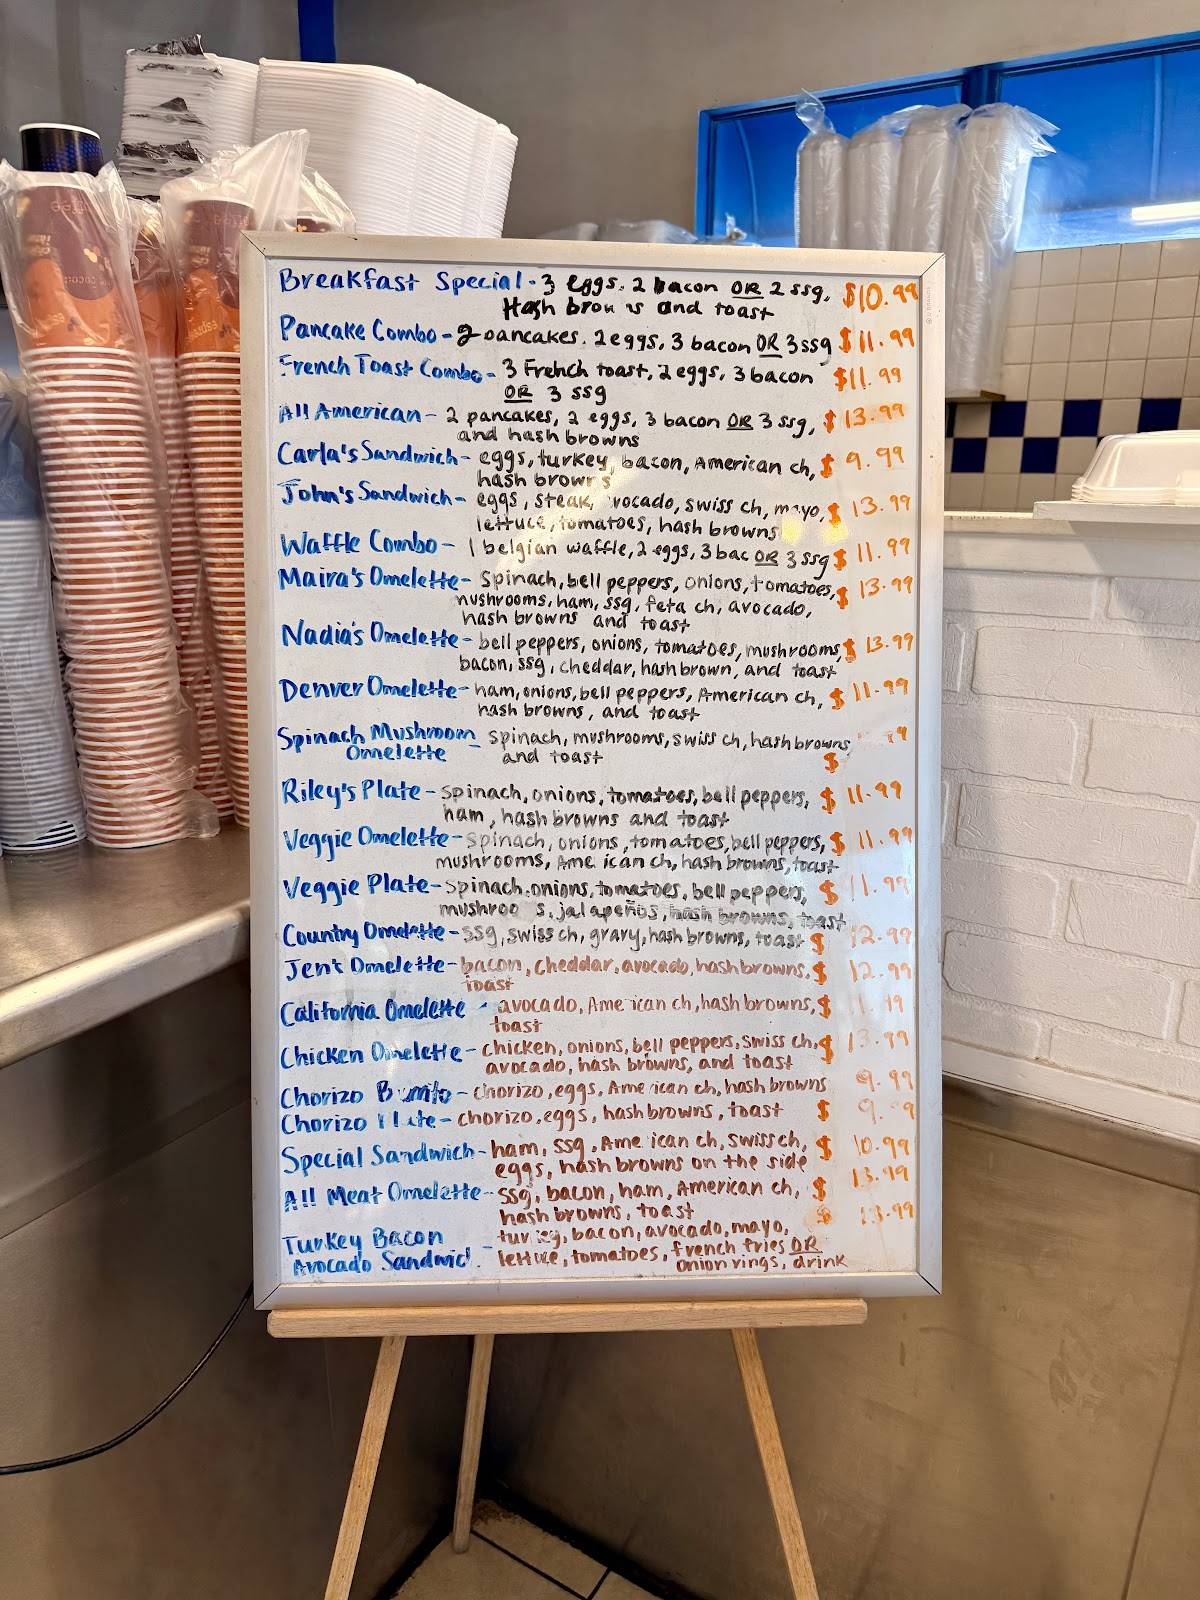 Breakfast Special - 3 eggs, 2 bacon OR 2 ssg, $10.99
Hash browns and toast
Pancake Combo - 2 pancakes, 2 eggs, 3 bacon OR 3 ssg $11.99
French Toast Combo - 3 French toast, 2 eggs, 3 bacon $11.99
OR 3 ssg
All American - 2 pancakes, 2 eggs, 3 bacon OR 3 ssg, $13.99
and hash browns
Carla's Sandwich - eggs, turkey, bacon, American ch, $9.99
hash browns
John's Sandwich - eggs, steak, avocado, swiss ch, mayo, $13.99
lettuce, tomatoes, hash browns
Waffle Combo - 1 belgian waffle, 2 eggs, 3 bac OR 3 ssg $11.99
Maira's Omelette - Spinach, bell peppers, onions, tomatoes, $13.99
mushrooms, ham, ssg, feta ch, avocado,
hash browns and toast
Nadia's Omelette - bell peppers, onions, tomatoes, mushrooms, $13.99
bacon, ssg, cheddar, hash brown, and toast
Denver Omelette - ham, onions, bell peppers, American ch, $11.99
hash browns, and toast
Spinach Mushroom Omelette - spinach, mushrooms, swiss ch, hash browns, $
and toast
Riley's Plate - spinach, onions, tomatoes, bell peppers, $11.99
ham, hash browns and toast
Veggie Omelette - spinach, onions, tomatoes, bell peppers, $11.99
mushrooms, American ch, hash browns, toast
Veggie Plate - spinach, onions, tomatoes, bell peppers, $11.99
mushrooms, jalapeños, hash browns, toast
Country Omelette - ssg, swiss ch, gravy, hash browns, toast $12.99
Jen's Omelette - bacon, cheddar, avocado, hash browns, $12.99
toast
California Omelette - avocado, American ch, hash browns, $11.99
toast
Chicken Omelette - chicken, onions, bell peppers, swiss ch, $13.99
avocado, hash browns, and toast
Chorizo Burrito - chorizo, eggs, American ch, hash browns 9.99
Chorizo Plate - chorizo, eggs, hash browns, toast $9.99
Special Sandwich - ham, ssg, American ch, swiss ch, $10.99
eggs, hash browns on the side
All Meat Omelette - ssg, bacon, ham, American ch, $13.99
hash browns, toast
Turkey Bacon Avocado Sandwich - turkey, bacon, avocado, mayo, $13.99
lettuce, tomatoes, french fries OR
onion rings, drink